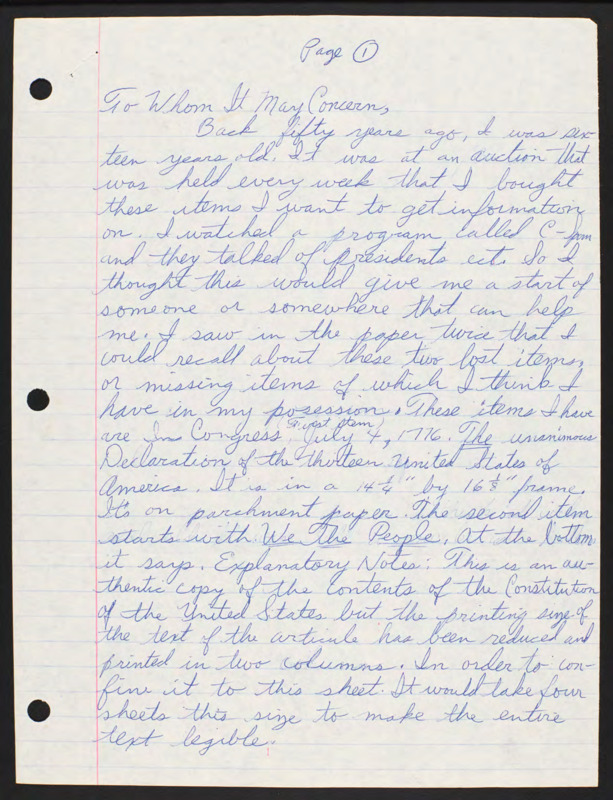 Page 1
To Whom It May Concern,
Back fifty years ago, I was six-
teen years old. It was at an auction that
was held every week that I bought
these items I want to get information
on. I watched a program called C-span
and they talked of Presidents ect. So I
thought this would give me a start of
someone or somewhere that can help
me. I saw in the paper twice that I
could recall about these two lost items,
or missing items of which I think I
have in my posession. These items I have
(First item)
are In Congress, July 4, 1776. The unanimous
Declaration of the thirteen United States of
America. It is in a 14 1/4" by 16 1/8" frame.
It's on parchment paper. The second item
starts with We The People. At the bottom
it says. Explanatory Notes: This is an au-
thentic copy of the contents of the Constitution
of the United States but the printing size of
the text of the articule has been reduced and
printed in two columns. In order to con-
fine it to this sheet. It would take four
sheets this size to make the entire
text legible.